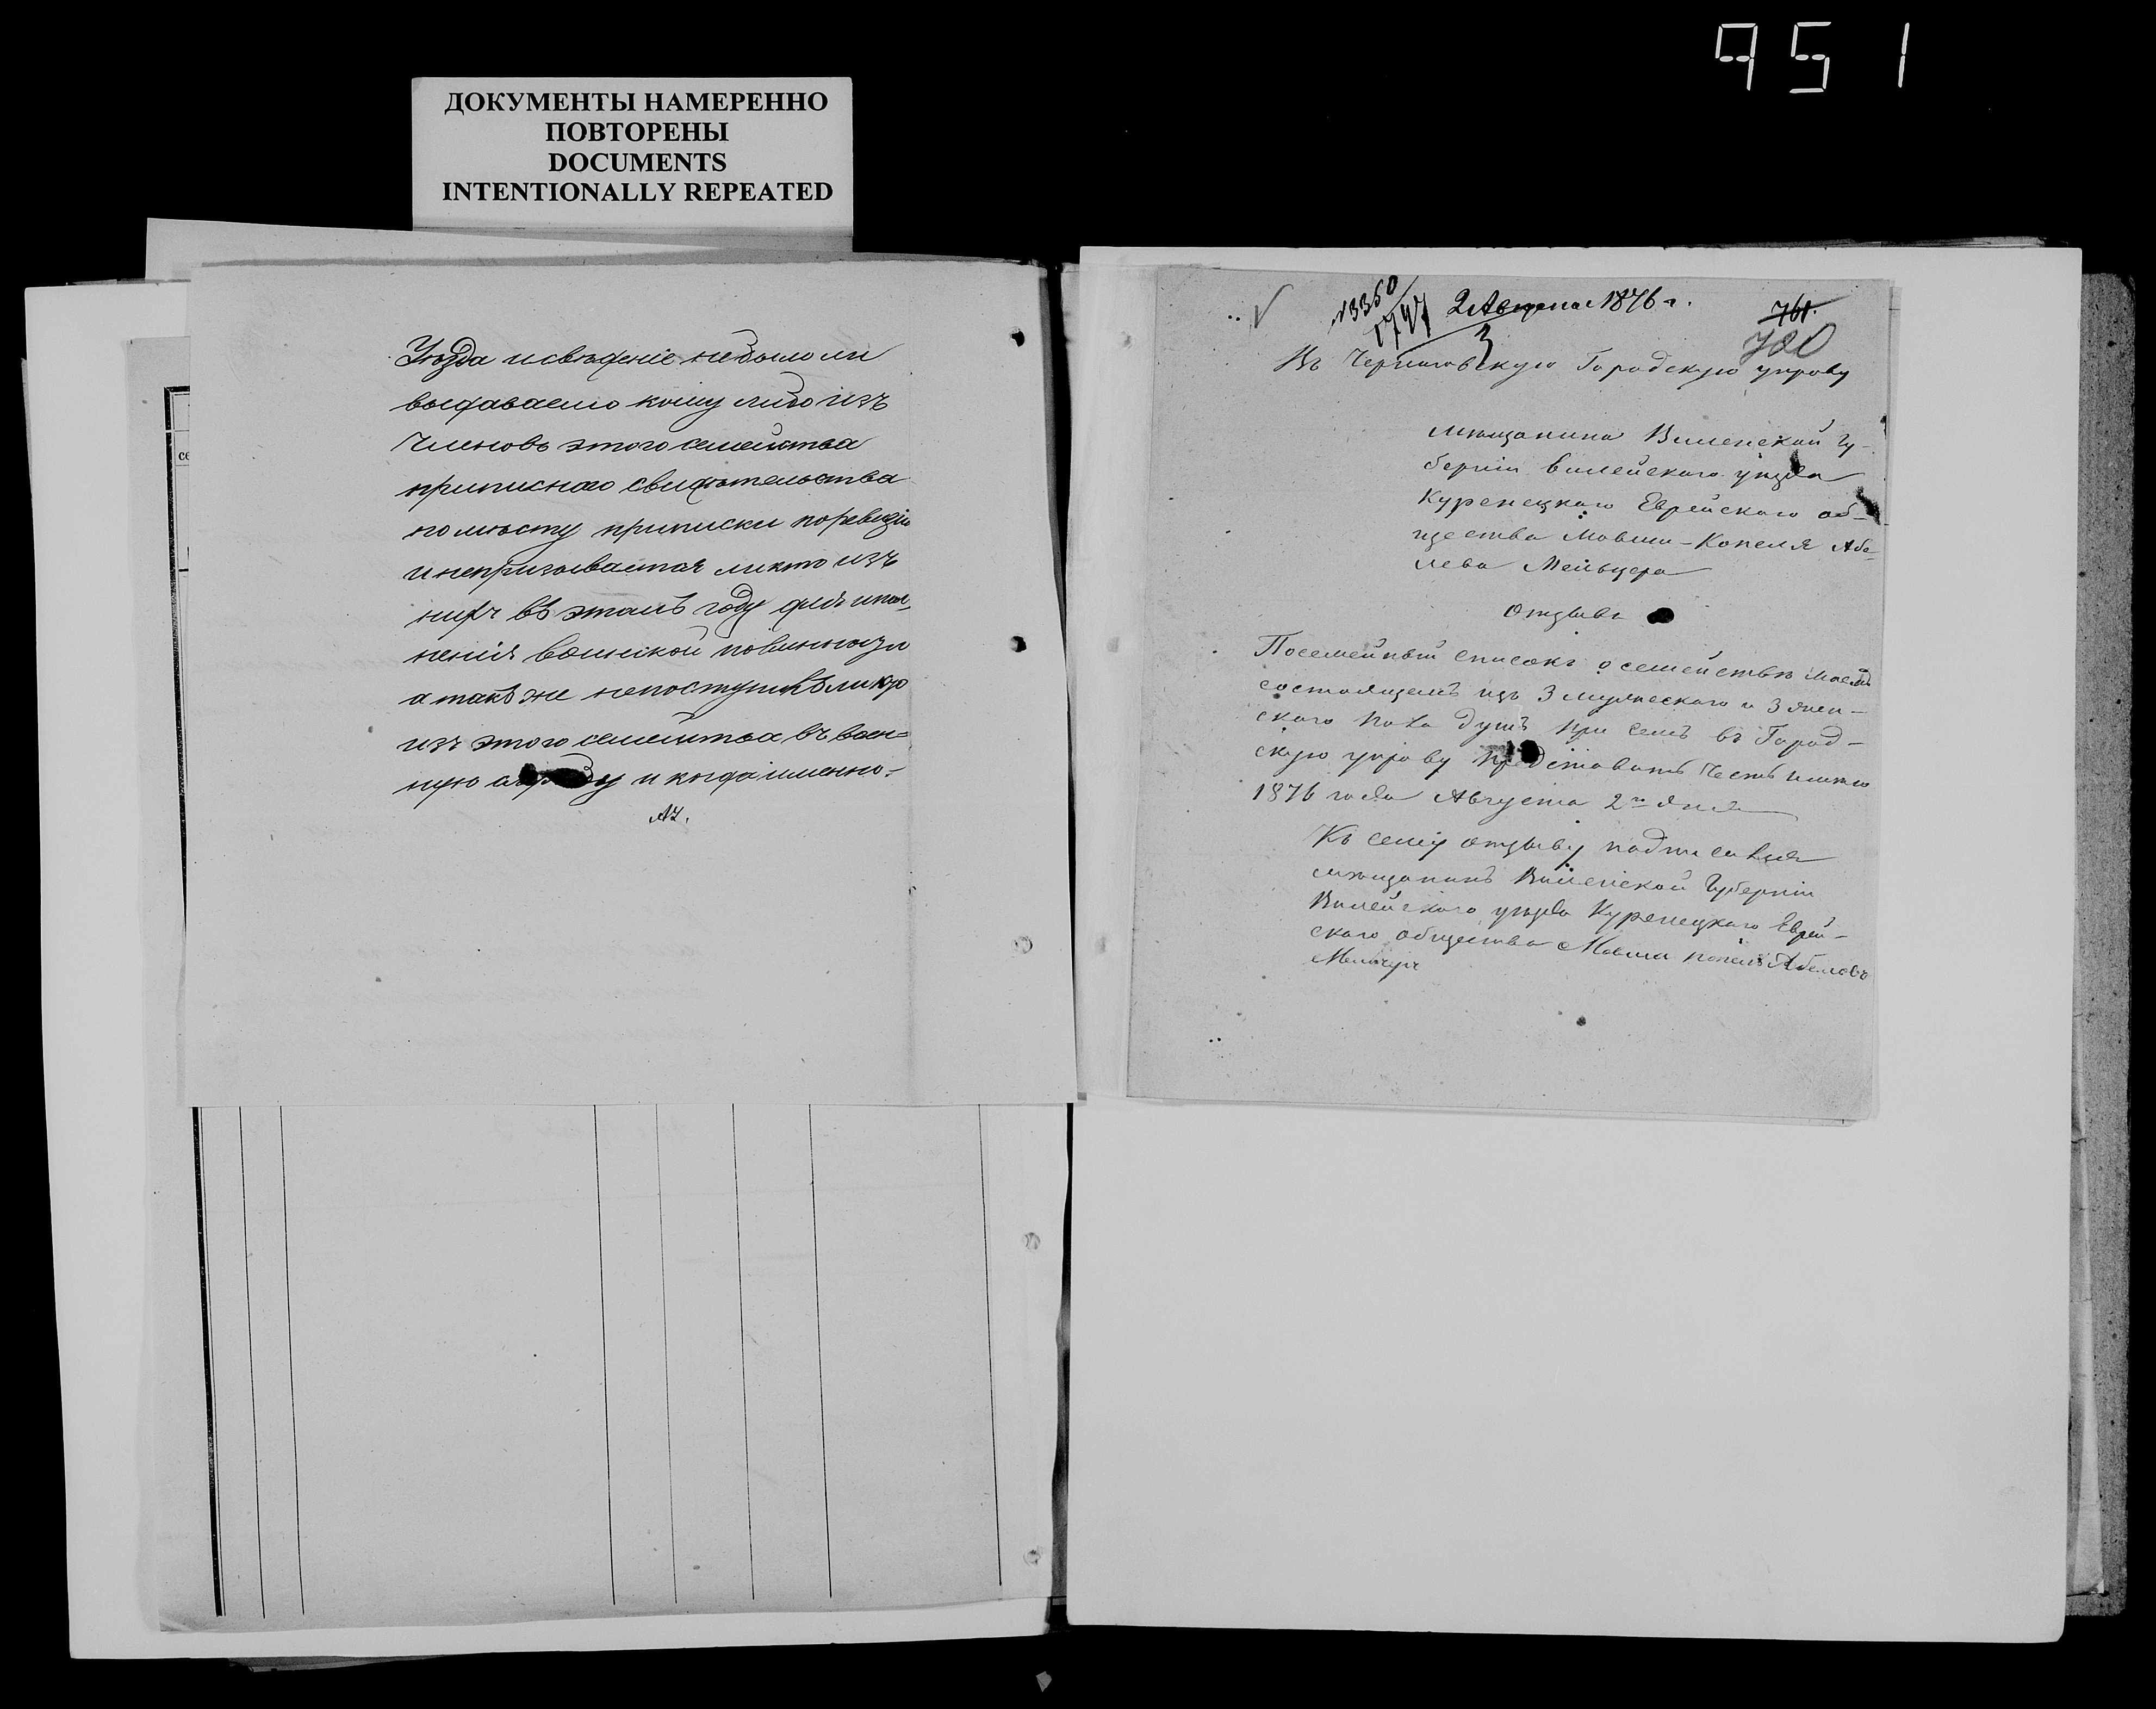 951
ДОКУМЕНТЫ НАМЕРЕННО
ПОВТОРЕНЫ
DOCUMENTS
INTENTIONALLY REPEATED
Уѣзда и свѣденіе небыло ли
выдаваемо кому либо изъ
Членовъ этого семейства
приписнаго свидѣтельства
по мѣсту приписки поревизіи
и непризывается ли кто изъ
нихъ въ этомъ году для испол-
ненія воинской повинности
а такъ же непоступилъ ли кто
изъ этого семейства въ воен=
ную и когда именно.
се
№ 3350
1747
3
2 Августа 1876 г.
761.
780
Въ Черниговскую Городскую управу
мѣщанина Виленской Гу-
берніи Вилейскаго уѣзда
Куренецкаго Еврейскаго об-
щества Мовши-Копеля Абе-
лева Мейльцера
Отзывъ
Посемейный списокъ о семействѣ моемъ
состоящемъ изъ 3 мужескаго и 3 жен-
скаго пола душъ при семъ въ Город-
скую управу представить Честь имѣю
1876 года Августа 2го дня
Къ сему отзыву подписался
мѣщанинъ Виленской Губерніи
Вилейскаго уѣзда Куренецкаго Еврей-
скаго общества Мовша Копель Абелевъ
Мельцеръ